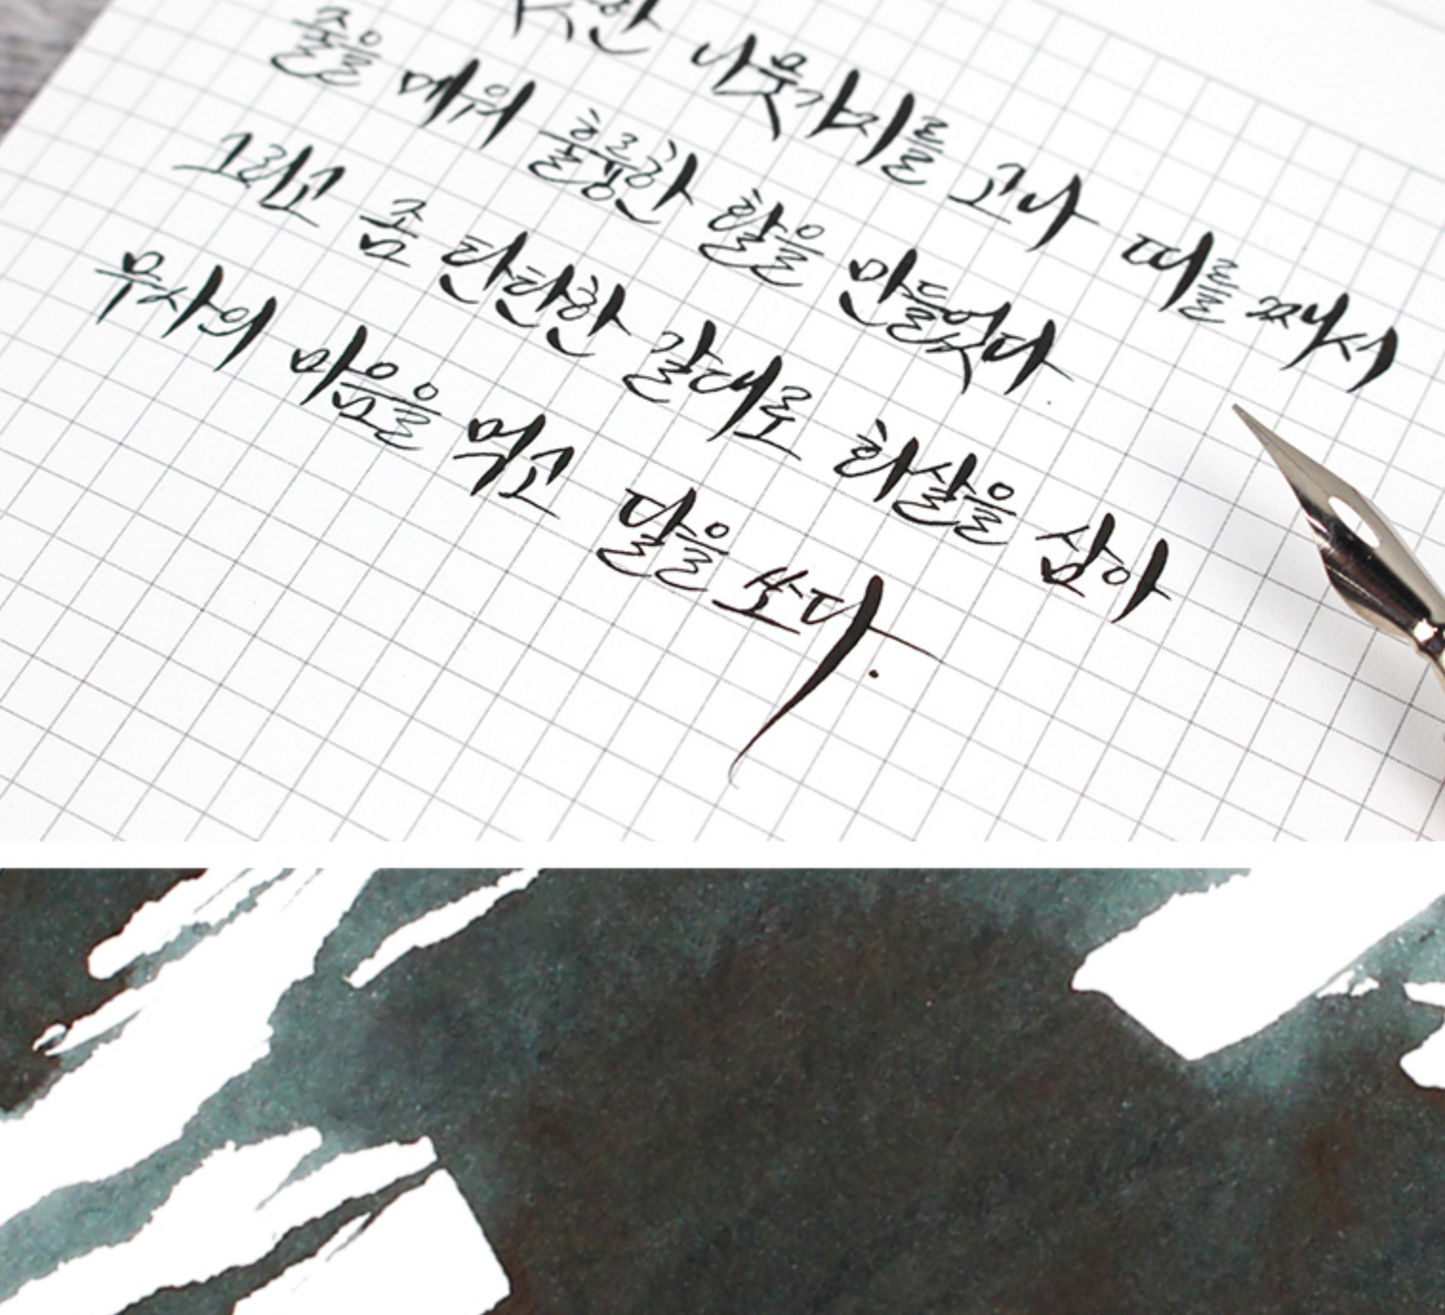 나뭇가지를 고나 띠를 째서
줄을 메워 훌륭한 활을 만들었다
그리고 좀 탄탄한 갈대로 화살을 삼아
무사의 마음을 먹고 달을 쏘다.